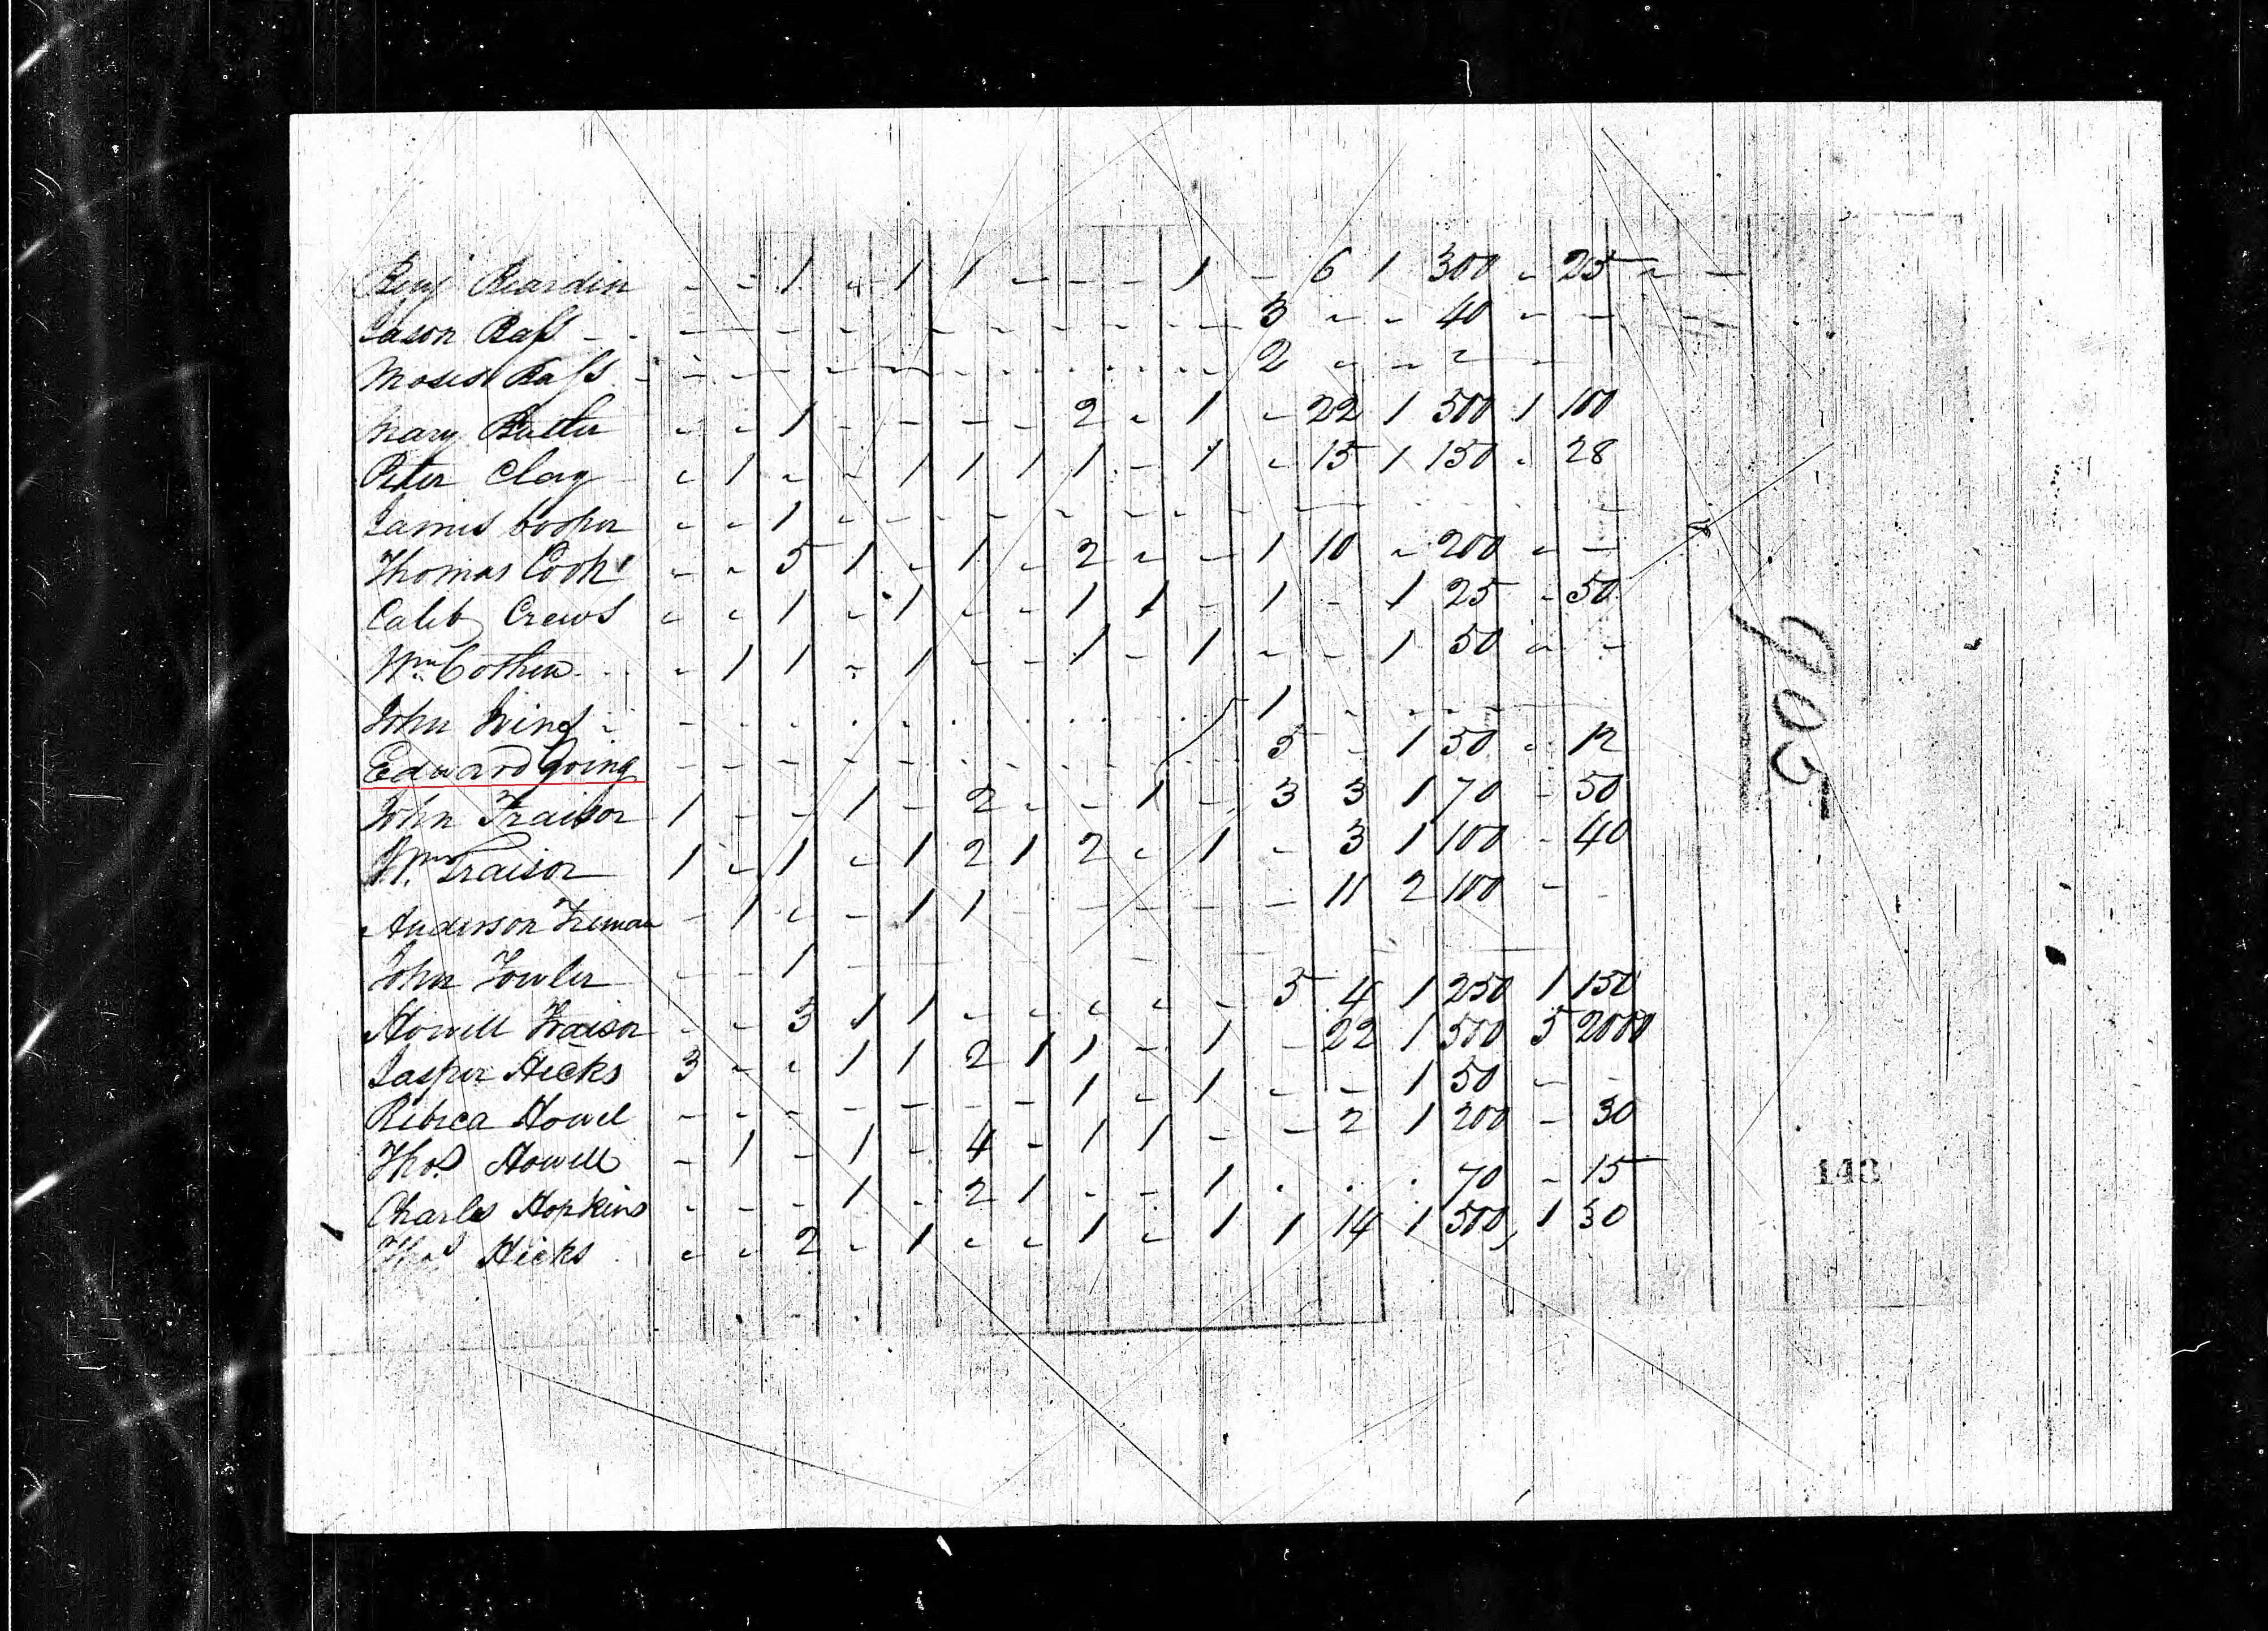 Benj Reardin - - 1 - 1 1 - - - 1 - 6 1 300 - 25 - -
Jason Bass - - - - - - - - - - - - 3 - - 40 - - -
Moses Bass - - - - - - - - - - - - 2 - - - - -
Mary Butler - - 1 - - - - 2 - 1 - 22 1 500 1 100
Peter Clay - 1 - - 1 1 1 1 - 1 - 15 1 150 - 28
James Cooper - - 1 - - - - - - - - - -
Thomas Cook - - 5 1 - 1 - 2 - - 1 10 - 200 - -
Caleb Crews - - 1 - 1 - - 1 1 - 1 - 1 25 - 50
Wm. - 1 1 - 1 - - 1 - 1 - - 1 50 - -
John - - - - - - - - - - 1 - - - -
Edward Going - - - - - - - - - - 5 - 1 50 - 12
John Fraisor 1 - - 1 - 2 - - 1 - 3 3 1 70 - 50
Wm. Fraisor 1 - 1 - 1 2 1 2 - 1 - 3 1 100 - 40
Anderson Freman - 1 - - 1 1 - - - - - 11 2 100 - -
John Fowler - - 1 - - - -
Howell Fraisor - - 3 1 1 - - - - - 5 4 1 250 1 150
Jasper Hicks 3 - - 1 1 2 1 1 - 1 - 22 1 500 5 2000
Rebeca Howel - - - - - - - 1 - 1 - - 1 50 - -
Thos. Howell - 1 - 1 - 4 - 1 1 - - 2 1 200 - 30
Charles Hopkins - - - 1 - 2 1 - - 1 - - - 70 - 15
Thos Hicks - - 2 - 1 - - 1 - 1 1 14 1 500 1 30
905
143